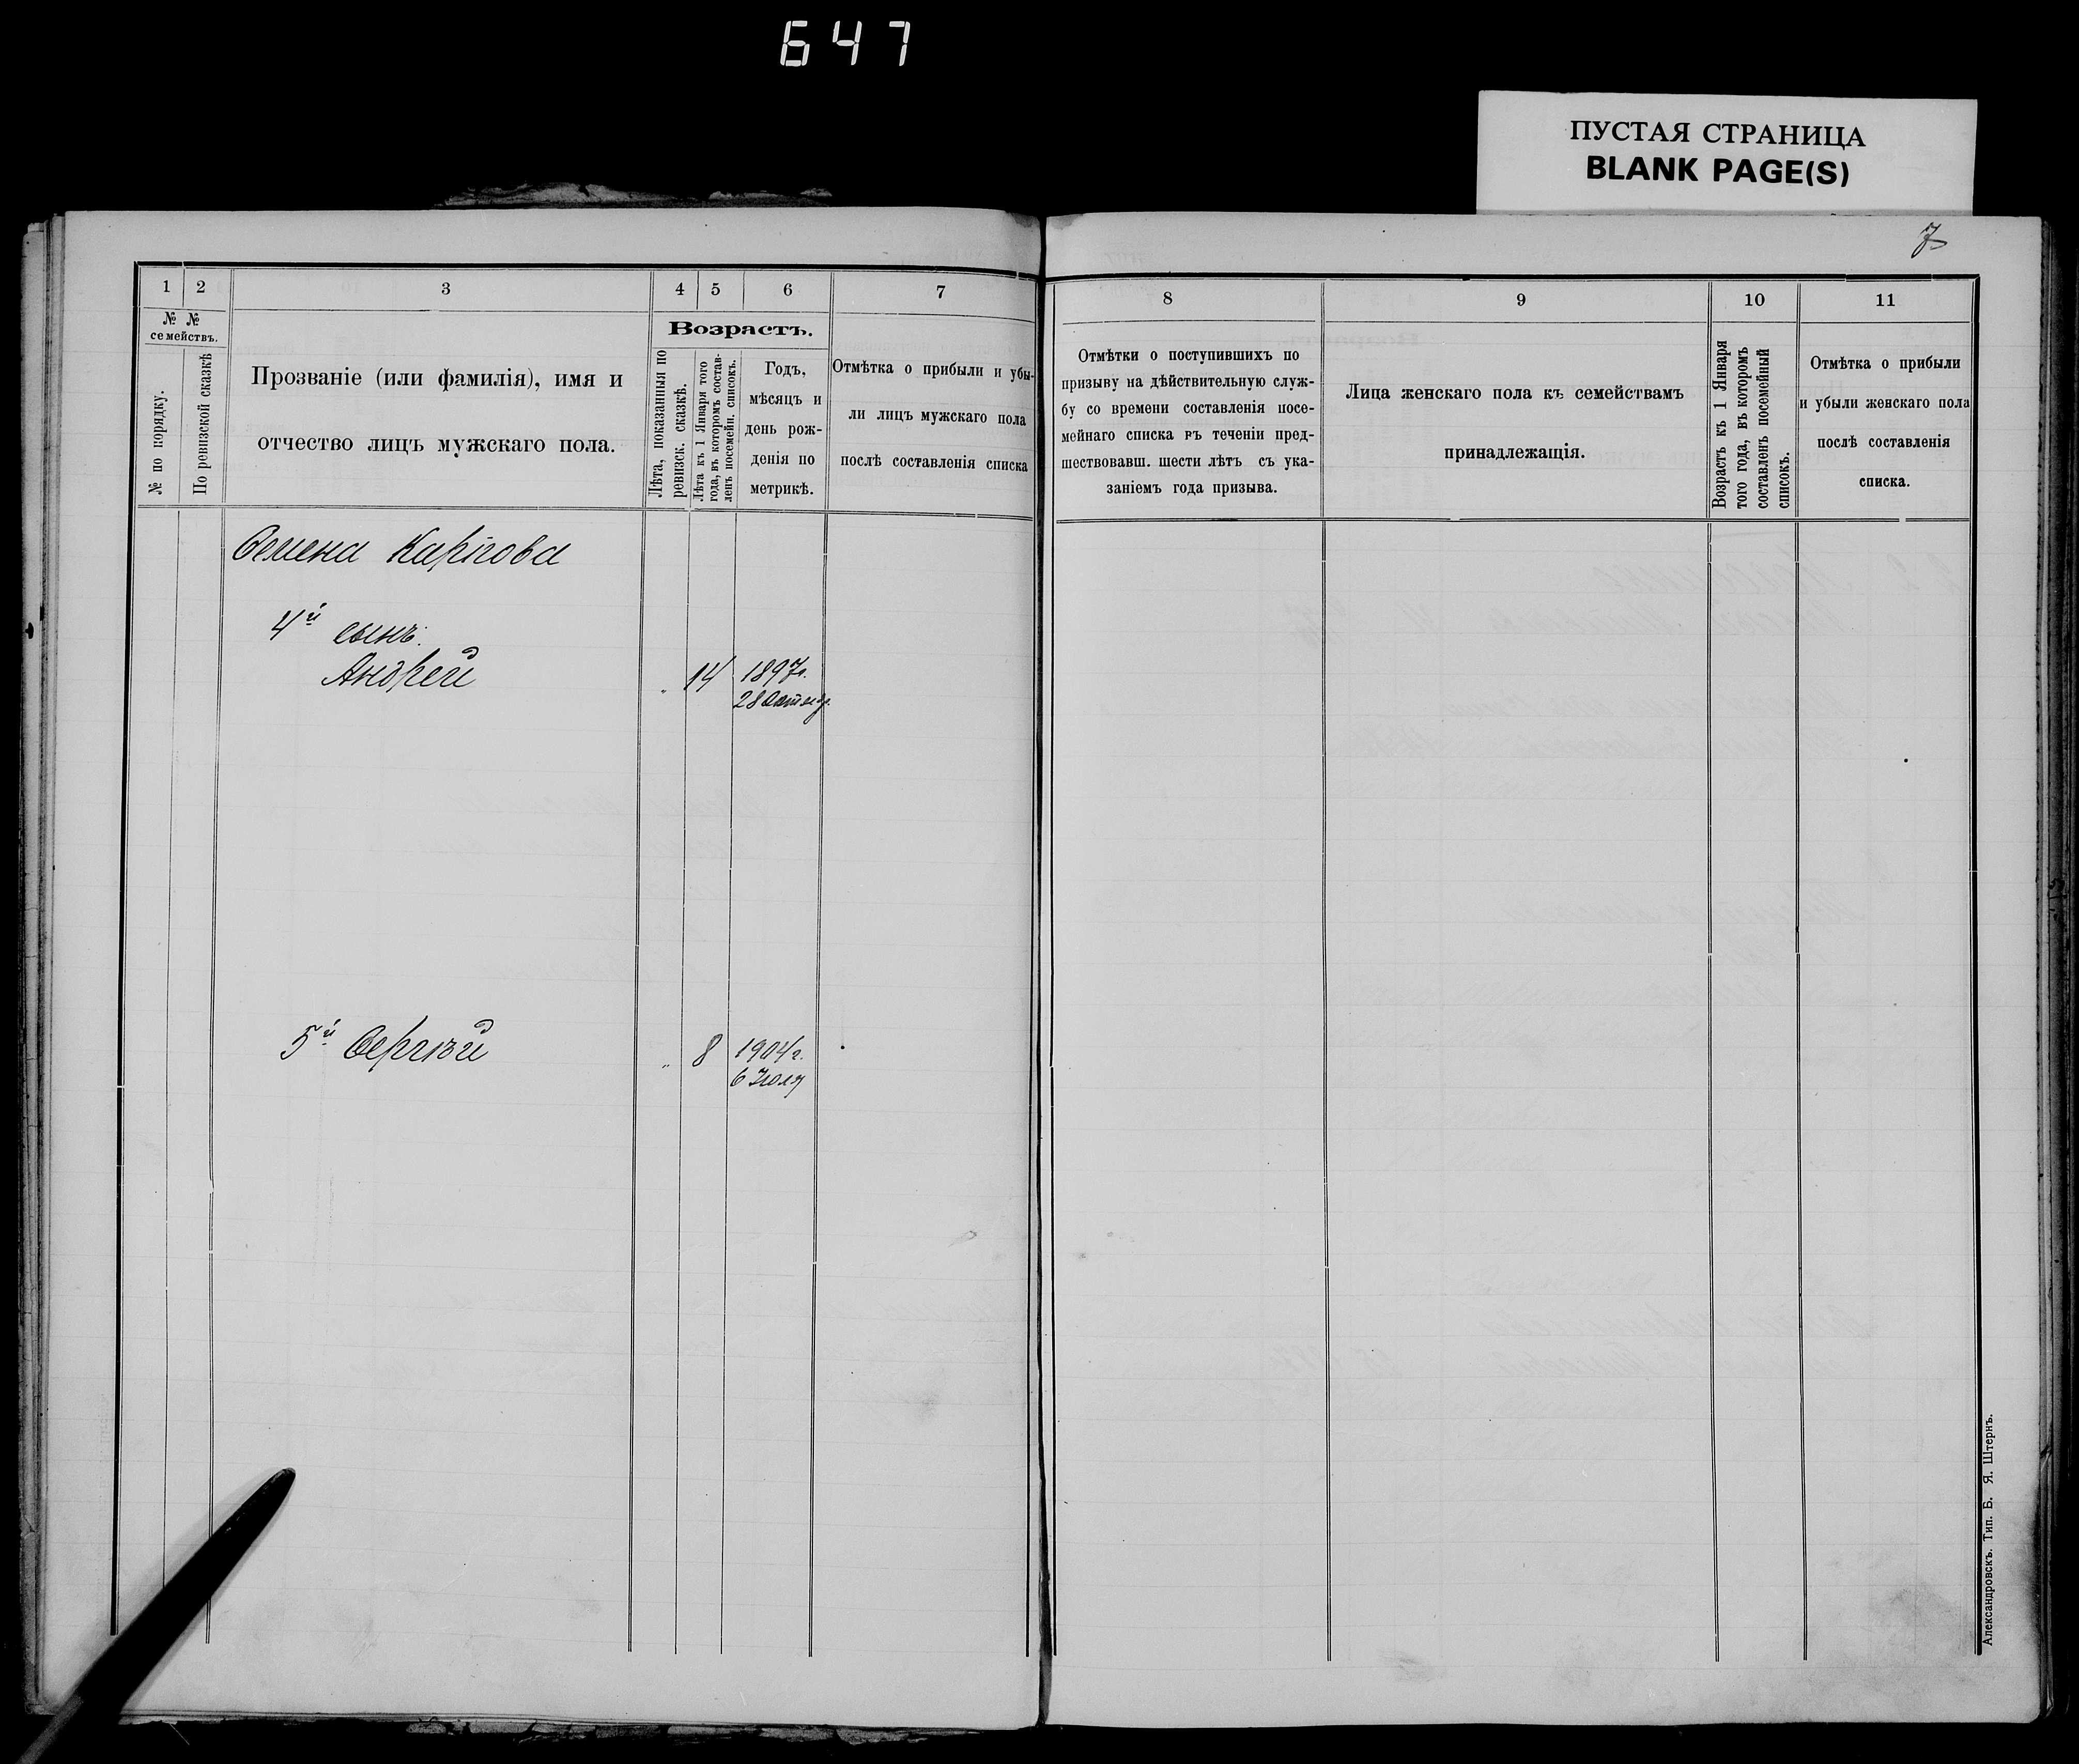 647
ПУСТАЯ СТРАНИЦА
BLANK PAGE(S)
7
1 2 3 4 5 6 7
№ № семействъ.
№ по порядку.
По ревизской сказкѣ
Прозваніе (или фамилія), имя и
отчество лицъ мужскаго пола.
Возрастъ.
Лѣта, показанныя по
ревизск. сказкѣ.
Лѣта къ 1 Января того
года, въ которомъ состав-
ленъ посемейн. списокъ.
Годъ,
мѣсяцъ и
день рож-
денія по
метрикѣ.
Отмѣтка о прибыли и убы-
ли лицъ мужскаго пола
послѣ составленія списка
Семена Каргова
4й сынъ.
Андрей 14 1897г.
28 Октябр.
5й Сергѣй 8 1904г.
6 Іюля
8 9 10 11
Отмѣтки о поступившихъ по
призыву на дѣйствительную служ-
бу со времени составленія посе-
мейнаго списка въ теченіи пред-
шествовавш. шести лѣтъ съ ука-
заніемъ года призыва.
Лица женскаго пола къ семействамъ
принадлежащія.
Возрастъ къ 1 Января
того года, въ которомъ
составленъ посемейный
списокъ.
Отмѣтка о прибыли
и убыли женскаго пола
послѣ составленія
списка.
Александровскъ. Тип. Б. Я. Штернъ.